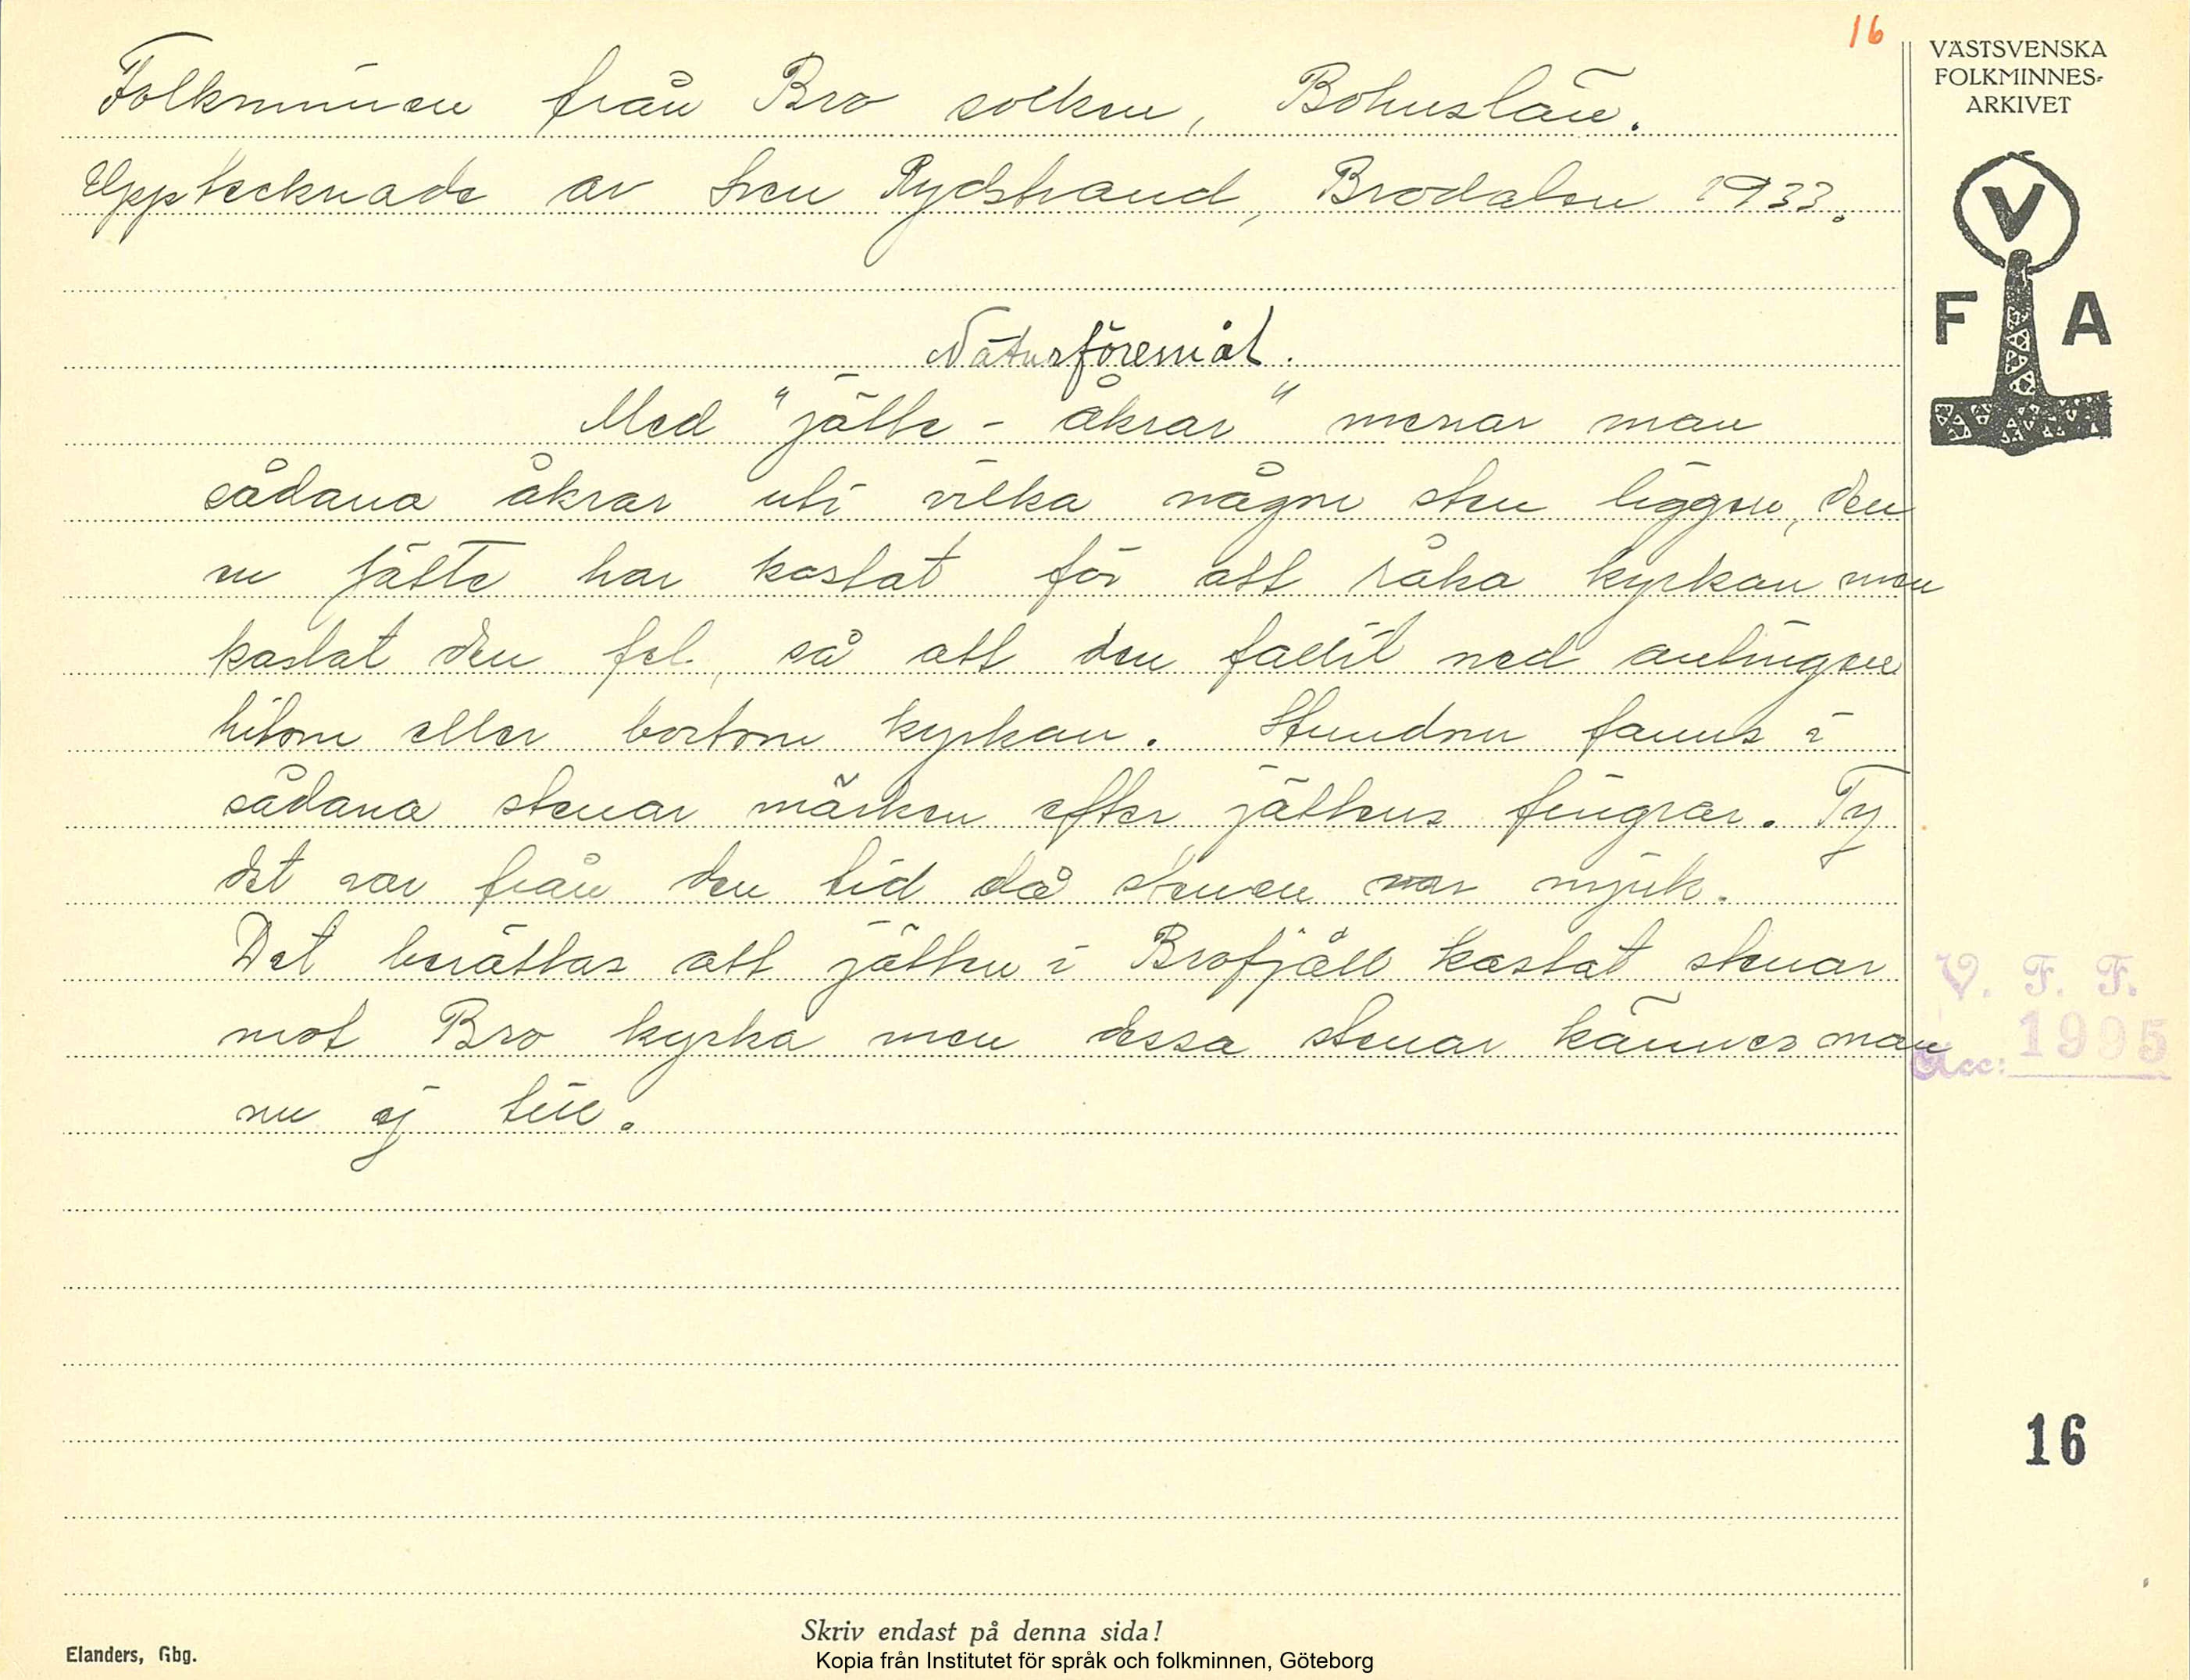 16
Folkminnen från Bro socken, Bohuslän.
Upptecknade av Sven Rydstrand, Brodalen 1933.
Naturföremål.
Med "jätte-åkrar" menar man
sådana åkrar uti vilka någon sten ligger, den
en jätte har kastat för att råka kyrkan men
kastat den fel, så att den fallit ned antingen
hitom eller bortom kyrkan. Stundom fanns i
sådana stenar märken efter jättens fingrar. Ty
det var från den tid då stenen var mjuk.
Det berättas att jätten i Brofjäll kastat stenar
mot Bro kyrka men dessa stenar känner man
nu ej till.
VÄSTSVENSKA
FOLKMINNES-
ARKIVET
V
F A
V. F. F.
Acc: 1995
16
Skriv endast på denna sida!
Elanders, Gbg.
Kopia från Institutet för språk och folkminnen, Göteborg